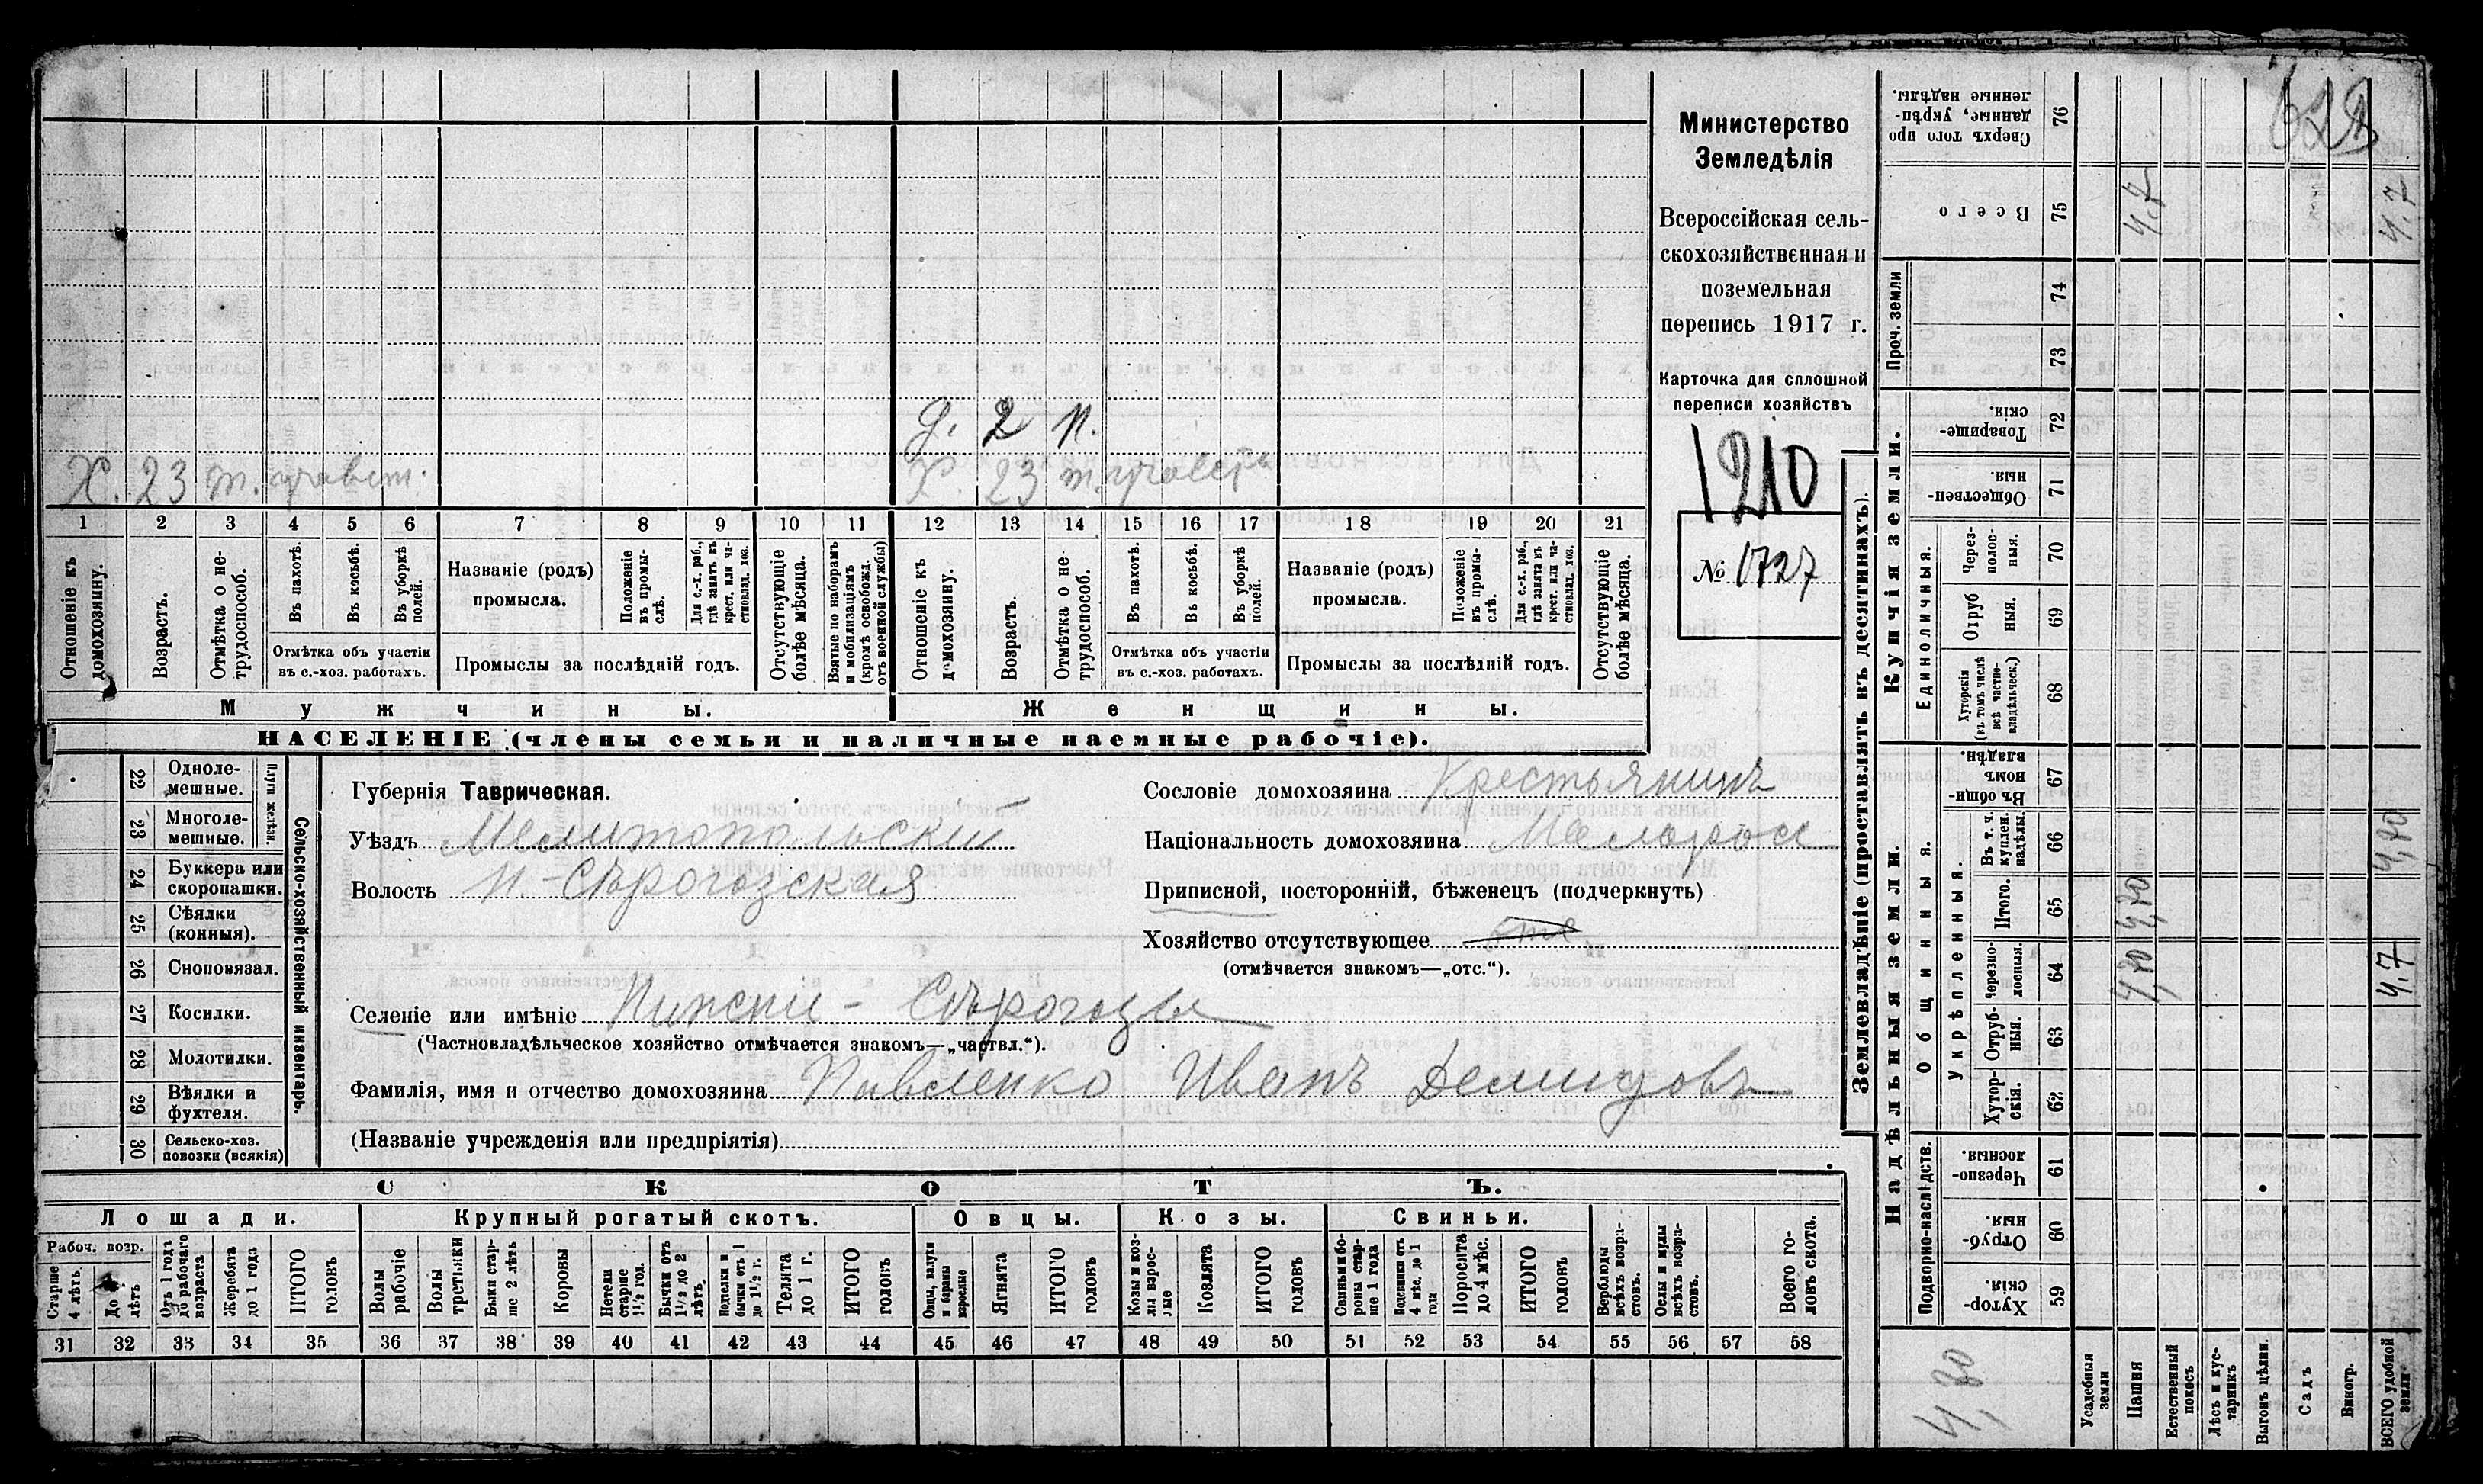 Х. 23 т.
д. 2 п.
Х. 23 т.
1 2 3 4 5 6 7 8 9 10 11 12 13 14 15 16 17 18 19 20 21
Отношеніе къ домохозяину.
Возрастъ.
Отмѣтка о не-трудоспособ.
Въ пахотѣ.
Въ косьбѣ.
Въ уборкѣ полей.
Отмѣтка объ участіи въ с.-хоз. работахъ.
Названіе (родъ) промысла.
Положеніе въ промы-слѣ.
Для с.-х. раб., гдѣ занятъ въ крест. или ча-стновлад. хоз.
Промыслы за послѣдній годъ.
Отсутствующіе болѣе мѣсяца.
Взятые по наборамъ и мобилизаціямъ (кромѣ освобожд. отъ военной службы)
Отношеніе къ домохозяину.
Возрастъ.
Отмѣтка о не-трудоспособ.
Въ пахотѣ.
Въ косьбѣ.
Въ уборкѣ полей.
Отмѣтка объ участіи въ с.-хоз. работахъ.
Названіе (родъ) промысла.
Положеніе въ промы-слѣ.
Для с.-х. раб., гдѣ занятъ въ крест. или ча-стновлад. хоз.
Промыслы за послѣдній годъ.
Отсутствующіе болѣе мѣсяца.
Мужчины.
Женщины.
НАСЕЛЕНІЕ (члены семьи и наличные наемные рабочіе).
Министерство
Земледѣлія
Всероссійская сель-
скохозяйственная и
поземельная
перепись 1917 г.
Карточка для сплошной
переписи хозяйствъ
1210
№ 1727
Сельско-хозяйственный инвентарь.
Плуги желѣзн.
22 Однолемешные.
23 Многолемешные.
24 Буккера или скоропашки.
25 Сѣялки (конныя).
26 Сноповязал.
27 Косилки.
28 Молотилки.
29 Вѣялки и фухтеля.
30 Сельско-хоз. повозки (всякія)
Губернія Таврическая.
Уѣздъ Мелитопольскій
Волость Н.-Сѣрогозская
Сословіе домохозяина Крестьянинъ
Національность домохозяина Малоросс
Приписной, посторонній, бѣженецъ (подчеркнуть)
Хозяйство отсутствующее
(отмѣчается знакомъ—„отс.“).
Селеніе или имѣніе Нижніе-Сѣрогозы
(Частновладѣльческое хозяйство отмѣчается знакомъ—„частвл.“).
Фамилія, имя и отчество домохозяина Павленко Иванъ Демидовъ
(Названіе учрежденія или предпріятія)
СКОТЪ.
Лошади. Крупный рогатый скотъ. Овцы. Козы. Свиньи.
Рабоч. возр.
Старше 4 лѣтъ.
До 4 лѣтъ
Отъ 1 года до рабочаго возраста
Жеребята до 1 года
ИТОГО головъ
Волы рабочіе
Волы третьяки
Быки стар-ше 2 лѣтъ
Коровы
Нетели старше 1½ год.
Бычки отъ 1½ до 2 лѣтъ.
Телята до 1 г.
ИТОГО головъ
Овцы, валухи и бараны взрослые
Ягнята
ИТОГО головъ
Козы и коз-лы взрос-лые
Козлята
ИТОГО головъ
Свиньи и бо-ровы стар-ше 1 года
Подсвинки отъ 4 мѣс. до 1 года
Поросята до 4 мѣс.
ИТОГО головъ
Верблюды всѣхъ возра-стовъ.
Ослы и мулы всѣхъ возра-стовъ.
Всего го-ловъ скота.
31 32 33 34 35 36 37 38 39 40 41 42 43 44 45 46 47 48 49 50 51 52 53 54 55 56 57 58
Землевладѣніе (проставлять въ десятинахъ).
Надѣльныя земли.
Купчія земли.
Подворно-наслѣдств.
Общинныя.
Укрѣпленныя.
Единоличныя.
Проч. земли
Сверхъ того про данные, укрѣп-ленные надѣлы. 76
Всего 75 4,7 4,7
74
73
Товарище-скія. 72
Обществен-ныя 71
Через-полос-ныя. 70
Отруб ныя. 69
Хуторскія (въ томъ числѣ всѣ частно-владѣльческ.) 68
Въ общи-номъ владѣн. 67
Въ т. ч. куплен. надѣлы. 66 4,70
Итого. 65 4,70
Черезпо-лосныя. 64 4,70 4,7
Отруб-ныя. 63
Хутор-скія. 62
Черезпо-лосныя. 61
Отруб-ныя. 60
Хутор-скія. 59
Усадебныя земли
Пашня
Естественный покосъ
Лѣсъ и кус-тарникъ
Выгонъ цѣлин.
Садъ
Виногр.
ВСЕГО удобной земли